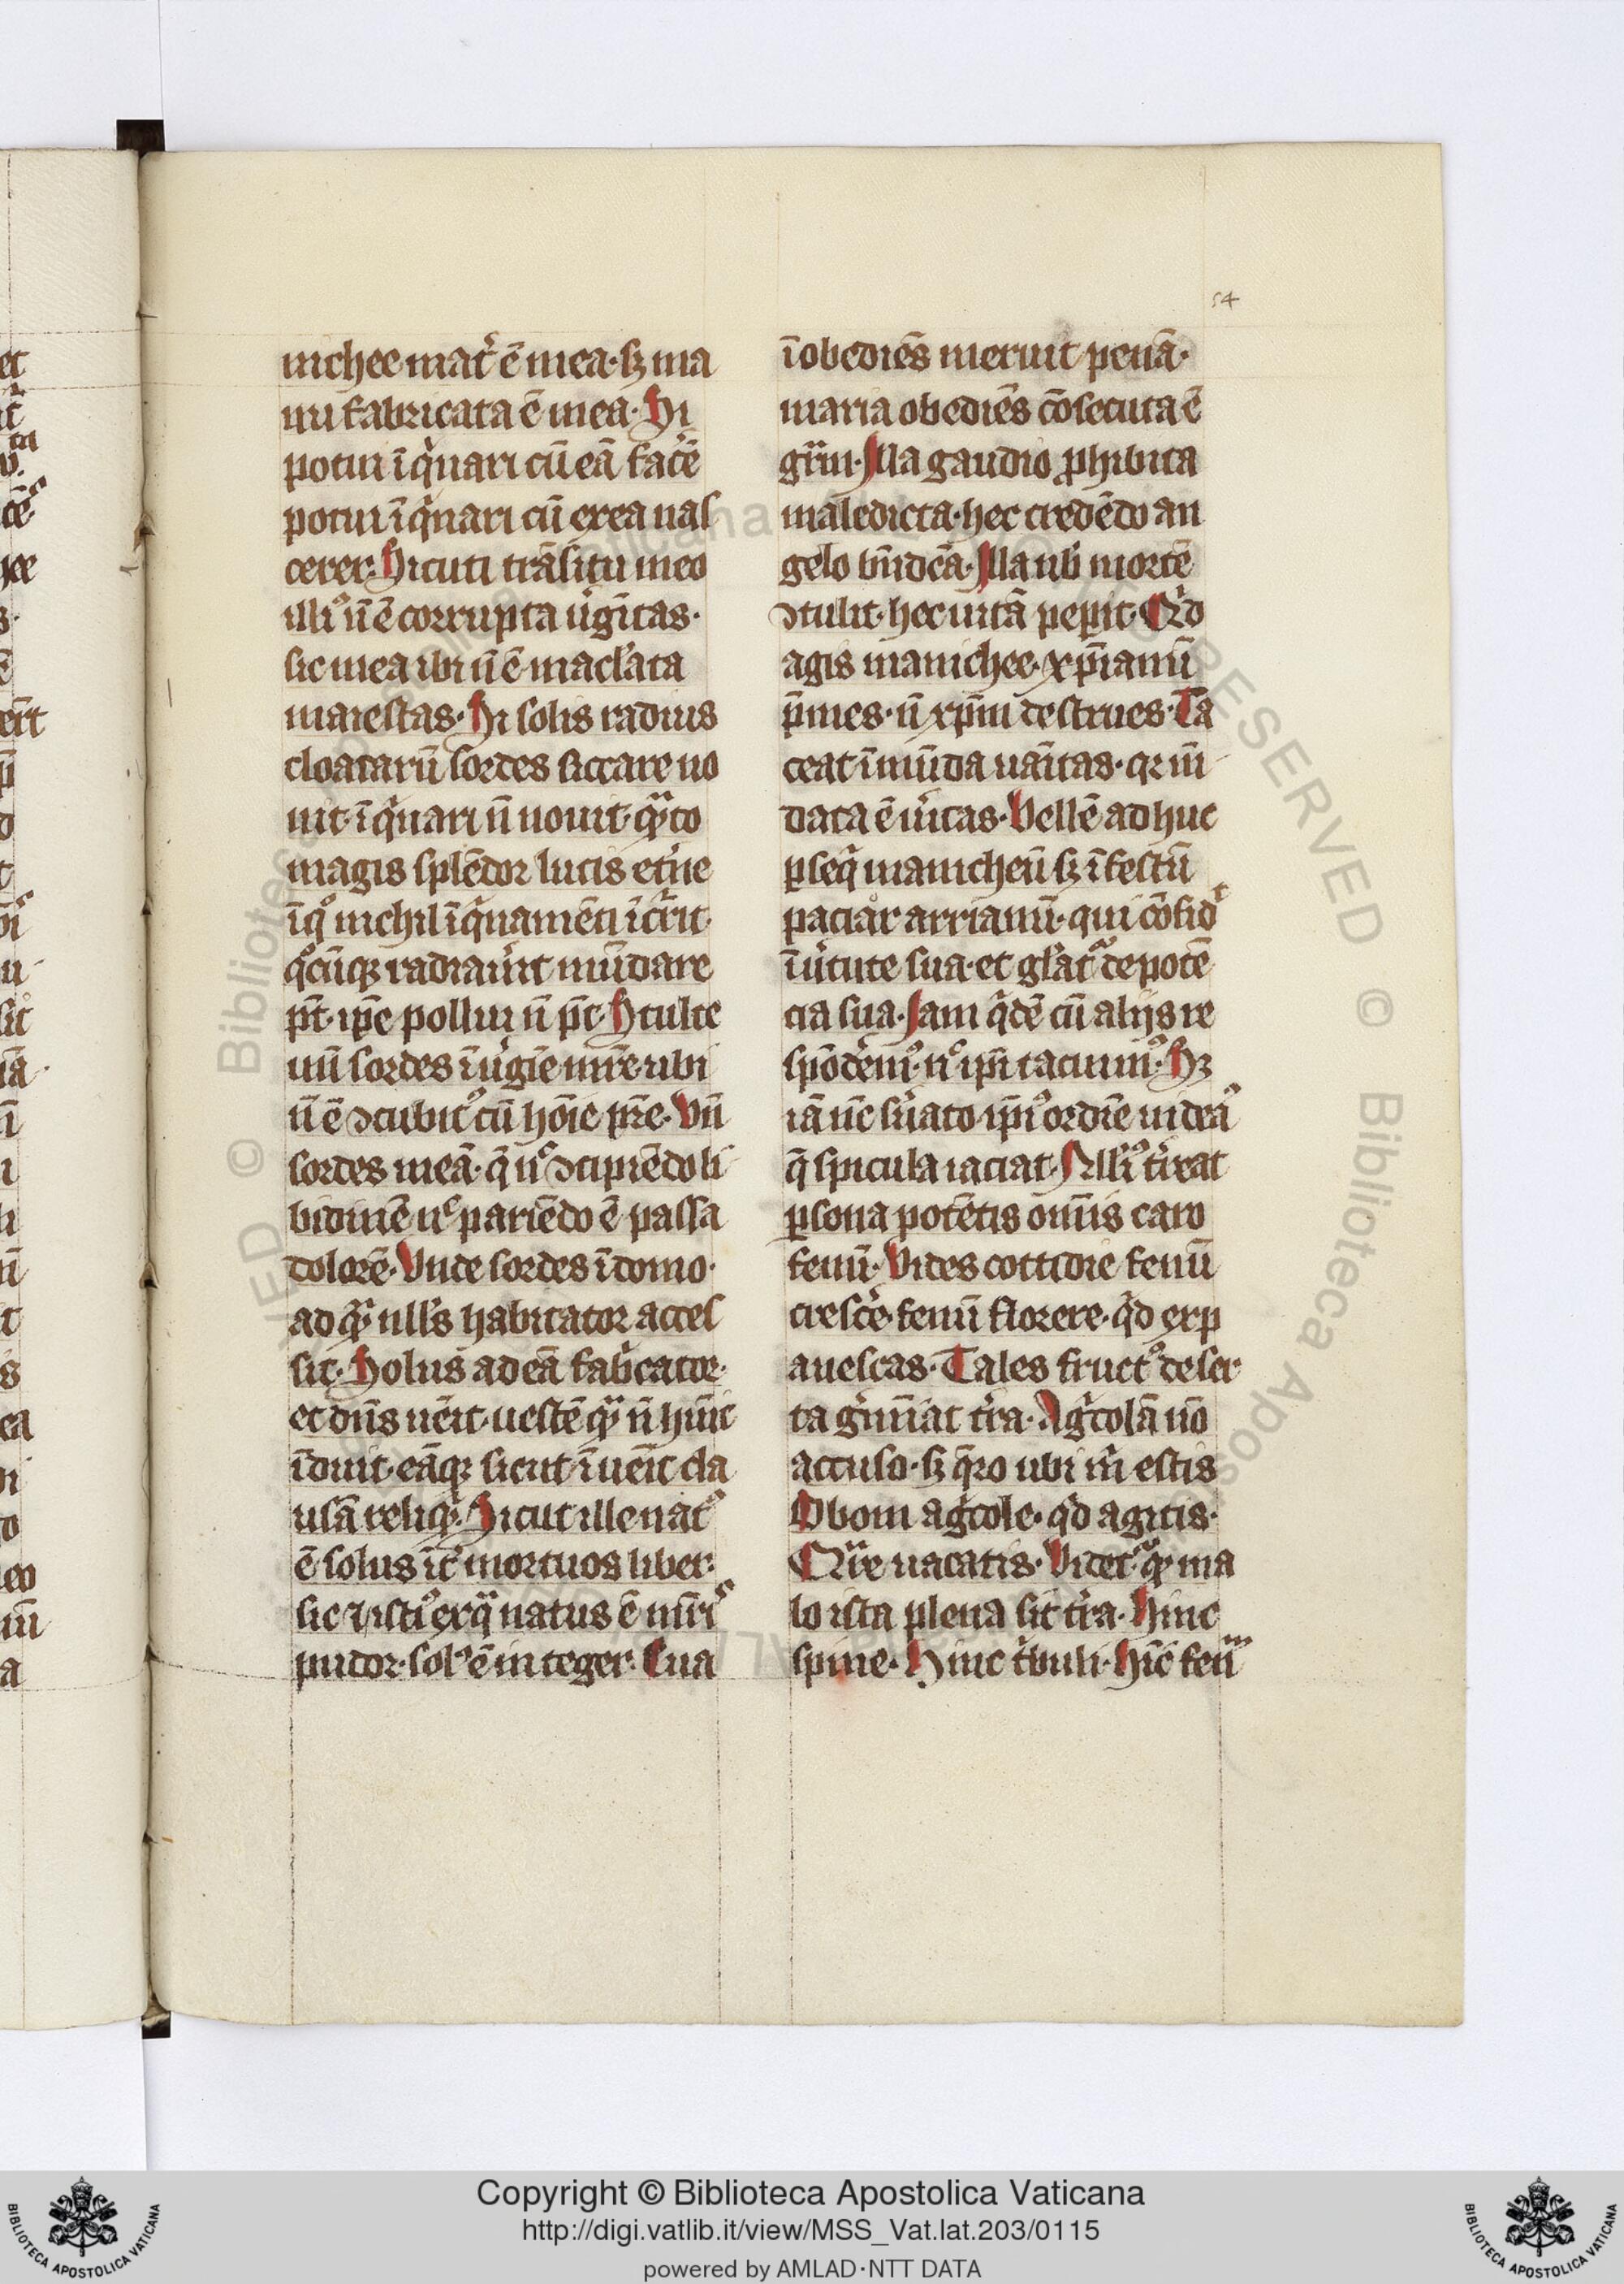 54
nichee mat̉ ē mea · sꝫ ma
nu fabricata ē mea · Si
potui īq̇nari cū eā facē̉
potui īq̇nari cū ex ea nas
cerer · Sicuti trāsitu meo
illiꝰ n̄ ē corrupta ũgītas ·
sic mea ibi n̄ ē mac̄lata
maiestas · Si solis radius
cloacarū sordes siccare no
uit · īq̇nari n̄ nouit · qͣ̃to
magis splēdor lucis et̉ne
ī qͦ nichil īq̇namēti īt̉rit ·
qͦcūqꝫ radiaủit mūdare
pt̄ · ip̄e pollui n̄ pt̄ · Stulte
un̄ sordes ī ũgīe mr̄e · ubi
n̄ ē ꝯcubitꝰ cū hōīe pr̄e · Vn̄
sordes ī eā · q̄ n̄ᶜ ꝯcipiēdo li
bidinē nᶜ pariēdo ē passa
dolorē · Vnde sordes ī domo ·
ad qͣ̃ null̄s habitator acces
sit · Solus ad eā fab̉cator
et dn̄s uēit · uestē qͣ̃ n̄ hūit
īduit · eāqꝫ sicut īuēit cla
usā reliq̇ · Sicut ille natꝰ
ē solus īt̉ mortuos liber ·
sic et istiꝰ ex qͣ natus ē mr̄is
pudor · solꝰ ē integer · Eua
īobediēs meruit penā ·
maria obediēs cōsecuta ē
gr̄am · Illa gaudio ꝓhibita
maledicta · hec credēdo an
gelo bn̄dcā · Illa nob̄ mortē
ꝯtulit · hec uitā pepit · Qͥd
agis manichee · xp̄ianū
p̄mes · n̄ xp̄m destrues · Ta
ceat īmūda uaītas · qꝛ m̄
data ē ũitas · Vellē adhuc
ꝑseq̇ manicheū sꝫ īfestū
paciar arrianū · qui cōfidᵗ
ī ũtute sua · et gl̄atͣ̉ de potē
cia sua · Iam q̇dē cū alijs re
spōdēmꝰ · nᶜ ip̄i tacuimꝰ · Sꝫ
iā nc̄ su̅ato ip̄iꝰ ordīe uideāꝰ
q̄ spicula iaciat · Nll̄iꝰ t̉reat
ꝑsona potētis om̄is caro
fenū · Vides cottidie fenū
crescē̉ · fenū florere · qͥd exp
auescas · Tales fructꝰ deser
ta g̉mīat t̉ra · Ag̉colā nō
accuso · sꝫ q̄ro ubi m̄ estis
O boni ag̉cole · qͥd agitis ·
Qͣre uacatis · Videt̉ qͣ̃ ma
lo ista plena sit t̉ra · Hinc
spine · Hinc t̉buli · Hīc fenū
Copyright © Biblioteca Apostolica Vaticana
http://digi.vatlib.it/view/MSS_Vat.lat.203/0115
powered by AMLAD·NTT DATA